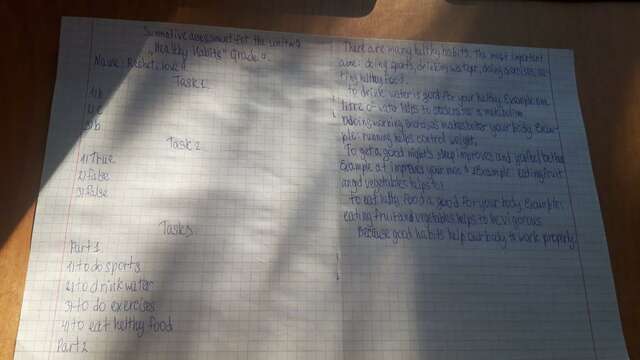 Summative assessment for the unit №2
„Healthy Habits" Grade 9.
Name:
Task 1
1) b
2) c
3) b
Task 2
1) True
2) False
3) False
Task 3
Part 1
1) to do sports
2) to drink water
3) to do exercises
4) to eat helthy food
Part 2
There are many helthy habits. The most important
are: doing sports, drinking water, doing exercises, ea-
ting helthy food.
to drink water is good for your helthy. Example: one
litre of water helps to metabolism
working makes better your body. Exam-
ple: running helps control weight.
To get a good night's sleep improves and
Example: it improves your Example: eating fruit
and vegetables helps to
To eat helthy food a good for your body. Example:
eating fruit and vegetables helps to be vigorous
Because good habits help our body to work properly.